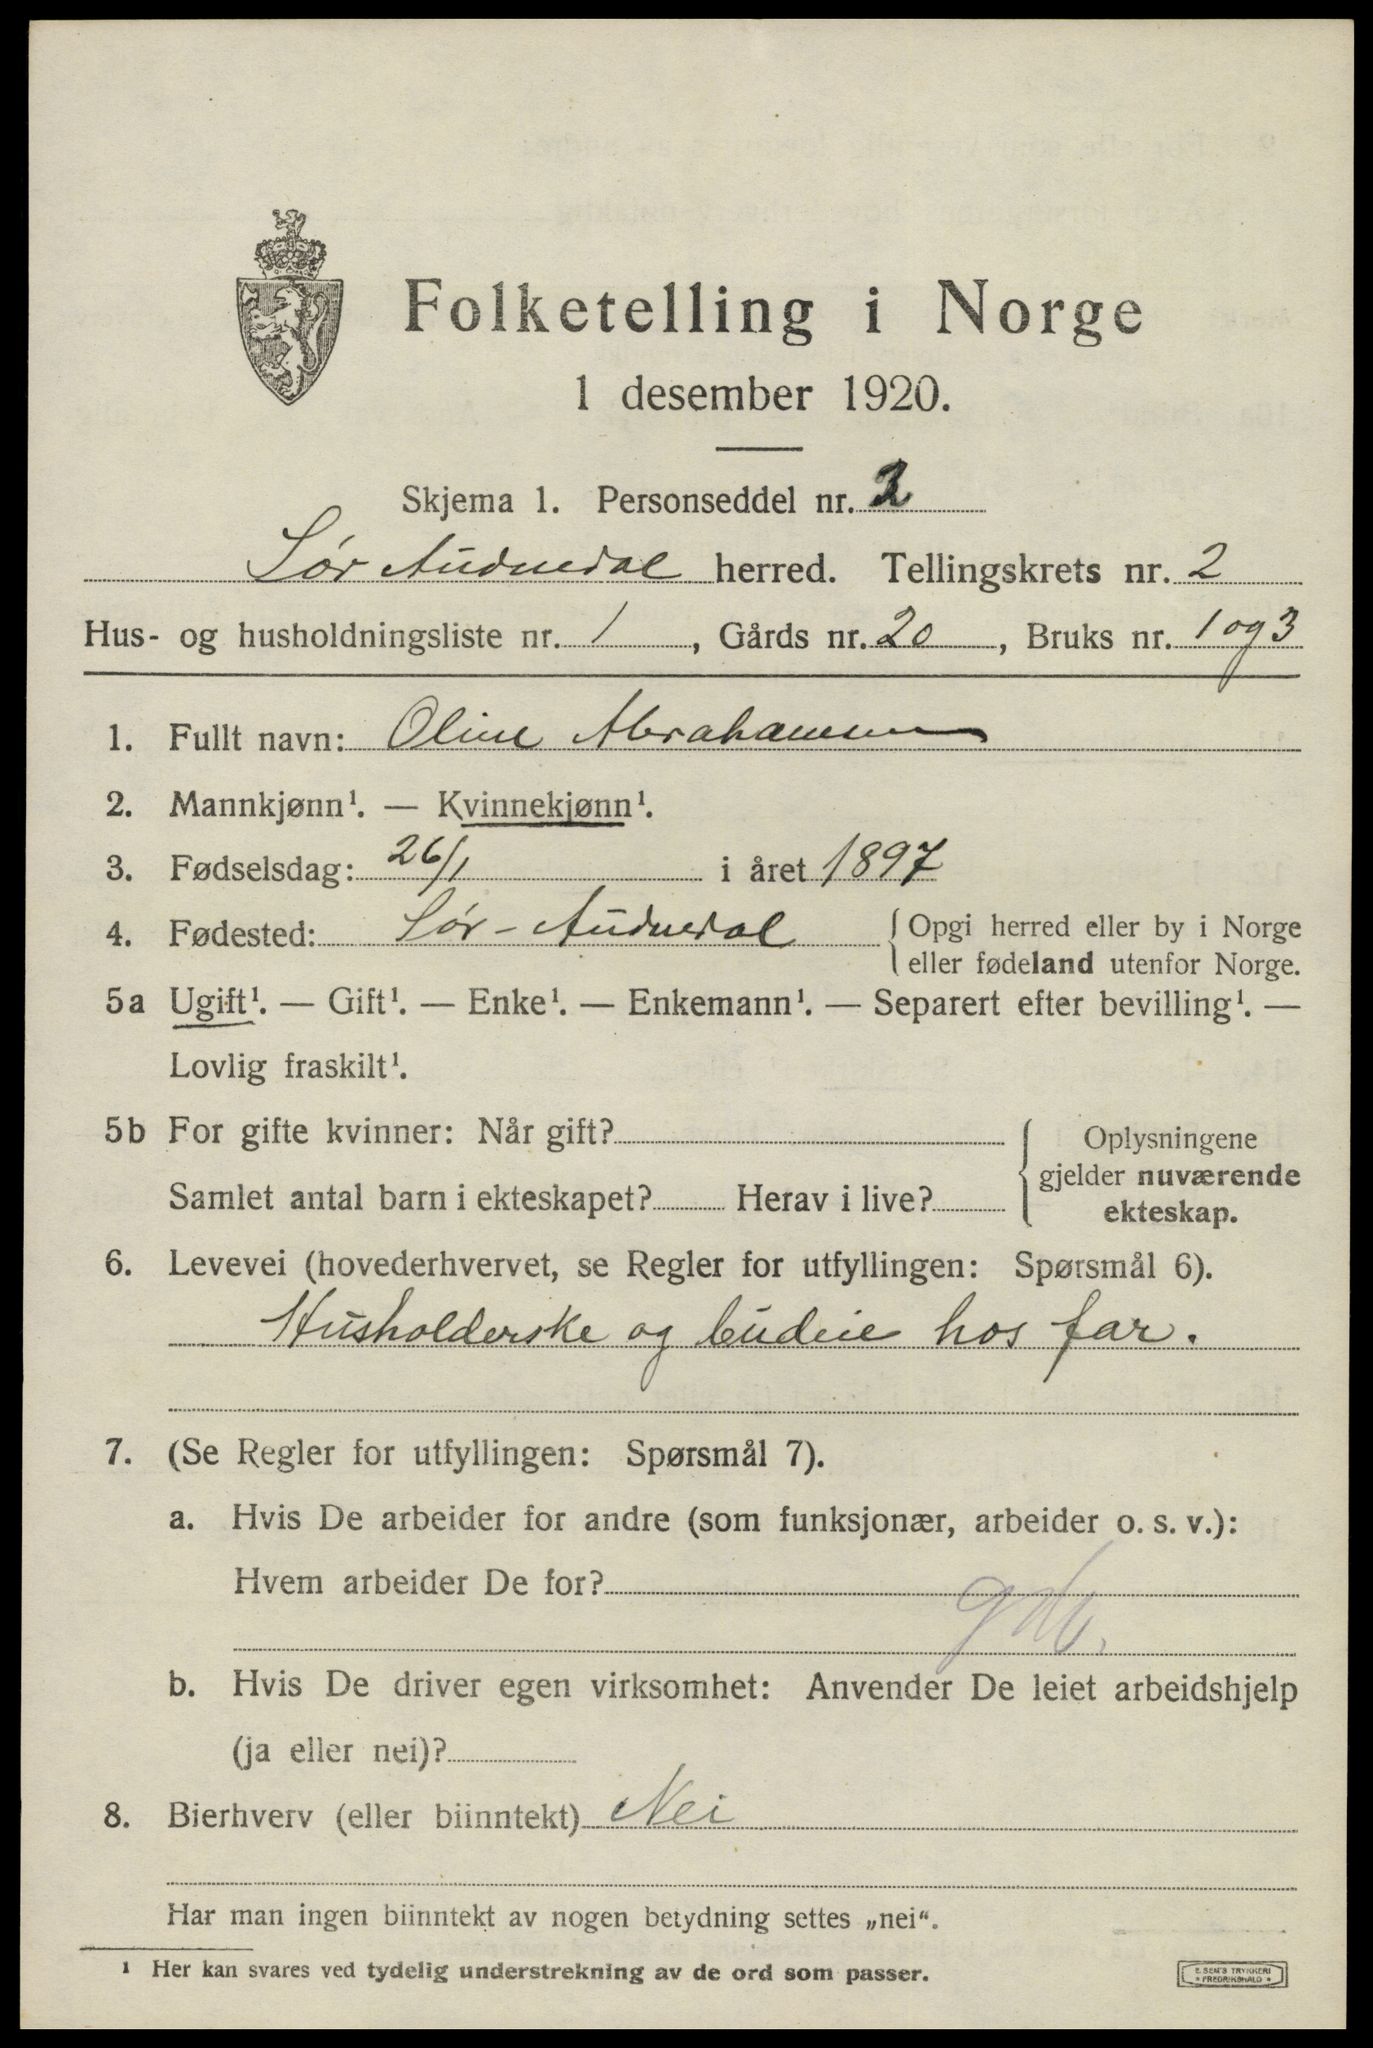 Folketelling i Norge
1 desember 1920.
Skjema 1. Personseddel nr. 2
Sør Audnedal herred. Tellingskrets nr. 2
Hus- og husholdningsliste nr. 1, Gårds nr. 20, Bruks nr. 1 og 3
1. Fullt navn: Oline Abrahamsen
2. Mannkjønn¹. — Kvinnekjønn¹.
3. Fødselsdag: 26/1 i året 1897
4. Fødested: Sør-Audnedal { Opgi herred eller by i Norge
eller fødeland utenfor Norge.
5a Ugift¹. — Gift¹. — Enke¹. — Enkemann¹. — Separert efter bevilling¹. —
Lovlig fraskilt¹.
5b For gifte kvinner: Når gift? { Oplysningene
gjelder nuværende
Samlet antal barn i ekteskapet? Herav i live? ekteskap.
6. Levevei (hovederhvervet, se Regler for utfyllingen: Spørsmål 6).
Husholderske og budeie hos far.
7. (Se Regler for utfyllingen: Spørsmål 7).
a. Hvis De arbeider for andre (som funksjonær, arbeider o. s. v.):
Hvem arbeider De for?
b. Hvis De driver egen virksomhet: Anvender De leiet arbeidshjelp
(ja eller nei)?
8. Bierhverv (eller biinntekt) Nei
Har man ingen biinntekt av nogen betydning settes „nei“.
¹ Her kan svares ved tydelig understrekning av de ord som passer.
E. SEM'S TRYKKERI
* FREDRIKSHALD *